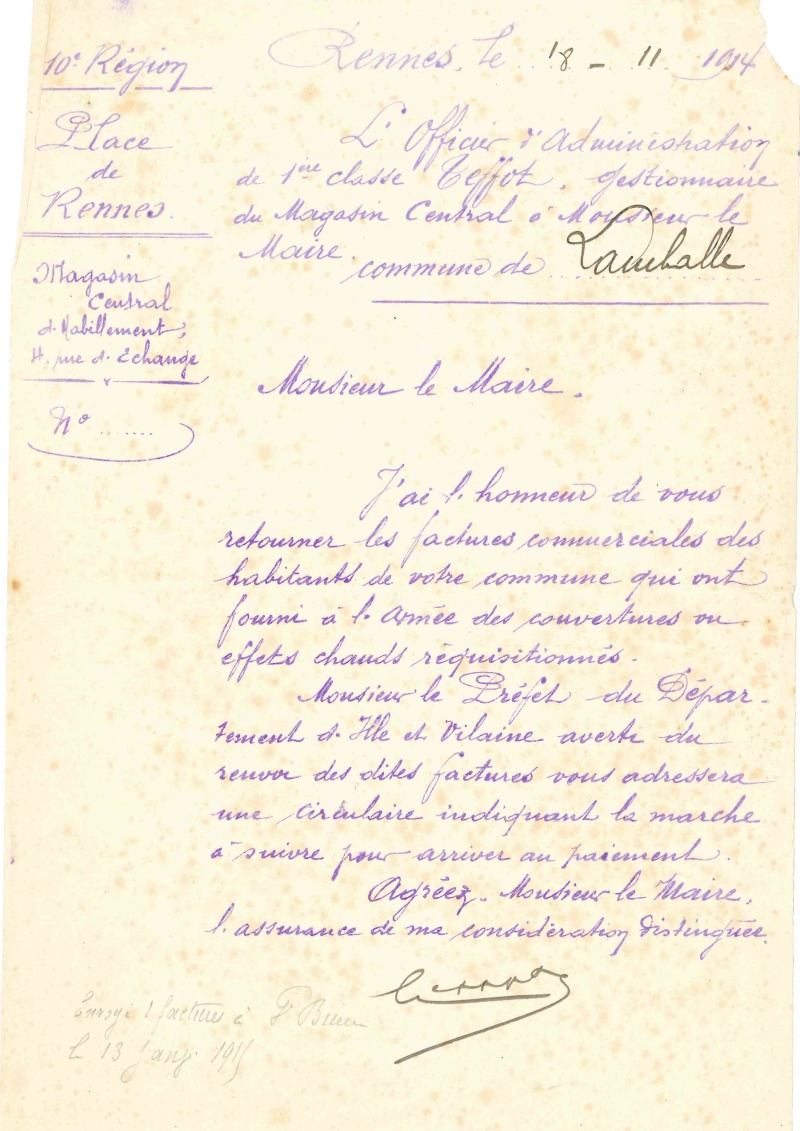 10e Région
Place
de
Rennes.
Magasin
Central
d'Habillement,
4. rue d'Echange
No .......
Rennes, le 18 - 11 1914
L'Officier d'Administration
de 1ère classe Teffot, gestionnaire
du Magasin Central à Monsieur le
Maire.
commune de Lamballe
Monsieur le Maire.
J'ai l'honneur de vous
retourner les factures commerciales des
habitants de votre commune qui ont
fourni à l'Armée des couvertures ou
effets chauds réquisitionnés.
Monsieur le Préfet du Dépar-
tement d'Ille et Vilaine averti du
renvoi des dites factures vous adressera
une circulaire indiquant la marche
à suivre pour arriver au paiement.
Agréez, Monsieur le Maire,
l'assurance de ma considération distinguée.
Envoyé 2 factures à St Brieuc
le 13 janv. 1915